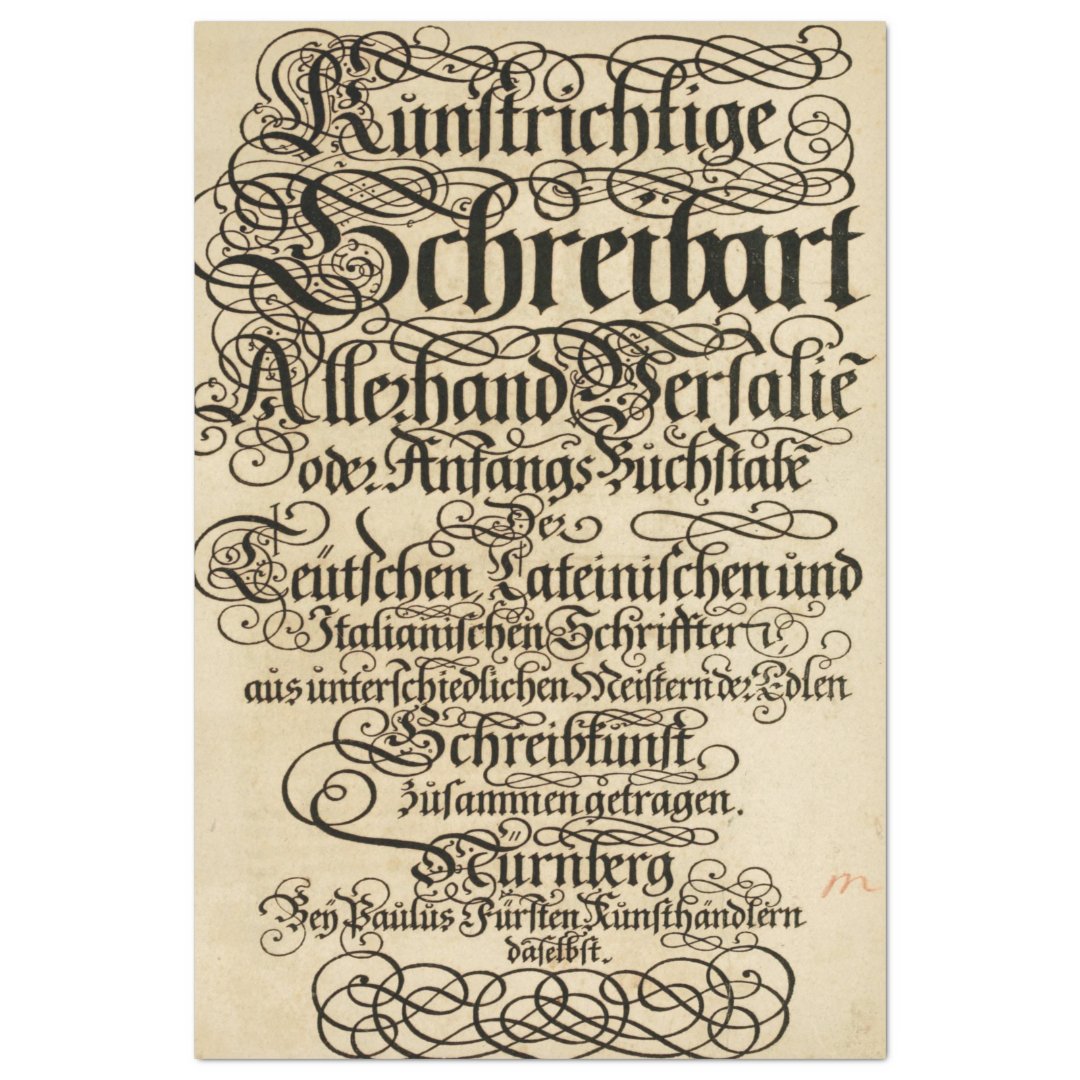 Kůnſtrichtige
Schreibart
Allerhand Verſaliē
oder Anfangs Bůchſtabē
Der
Teütſchen, Lateiniſchen ůnd
Italianiſchen Schrifften
aůs ůnterſchiedlichen Meiſtern der Edlen
Schreibkůnſt
Zůſammen getragen.
Nürnberg
Bey Paulůs Fürſten Kůnſthändlern
daſelbſt.
m